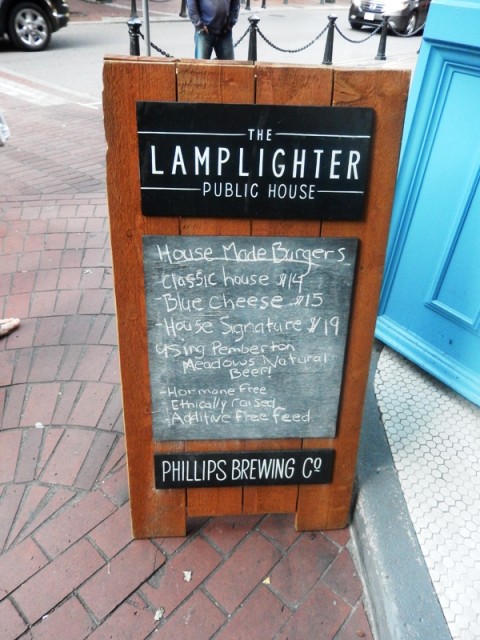 THE
LAMPLIGHTER
PUBLIC HOUSE
House Made Burgers
Classic house $14
-Blue Cheese $15
-House Signature $19
using Pemberton
Meadows Natural
Beef!
-Hormone Free
Ethically raised
-Additive Free feed
PHILLIPS BREWING Cº